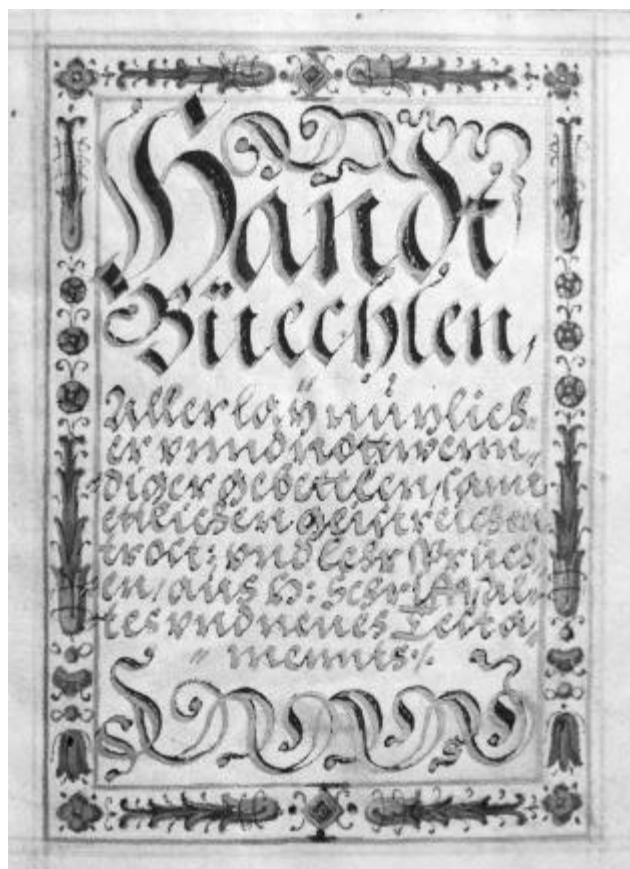 Handt
Büechlen,
Allerlaÿ nüzlich„
er vnnd nottwenn„
diger gebettlen, samt
ettlichen geistreichen
trost: vnd lehr Sprüch„
en, aus H: schrifft, al„
tes vnd neües Testa„
„ mennts ⁒